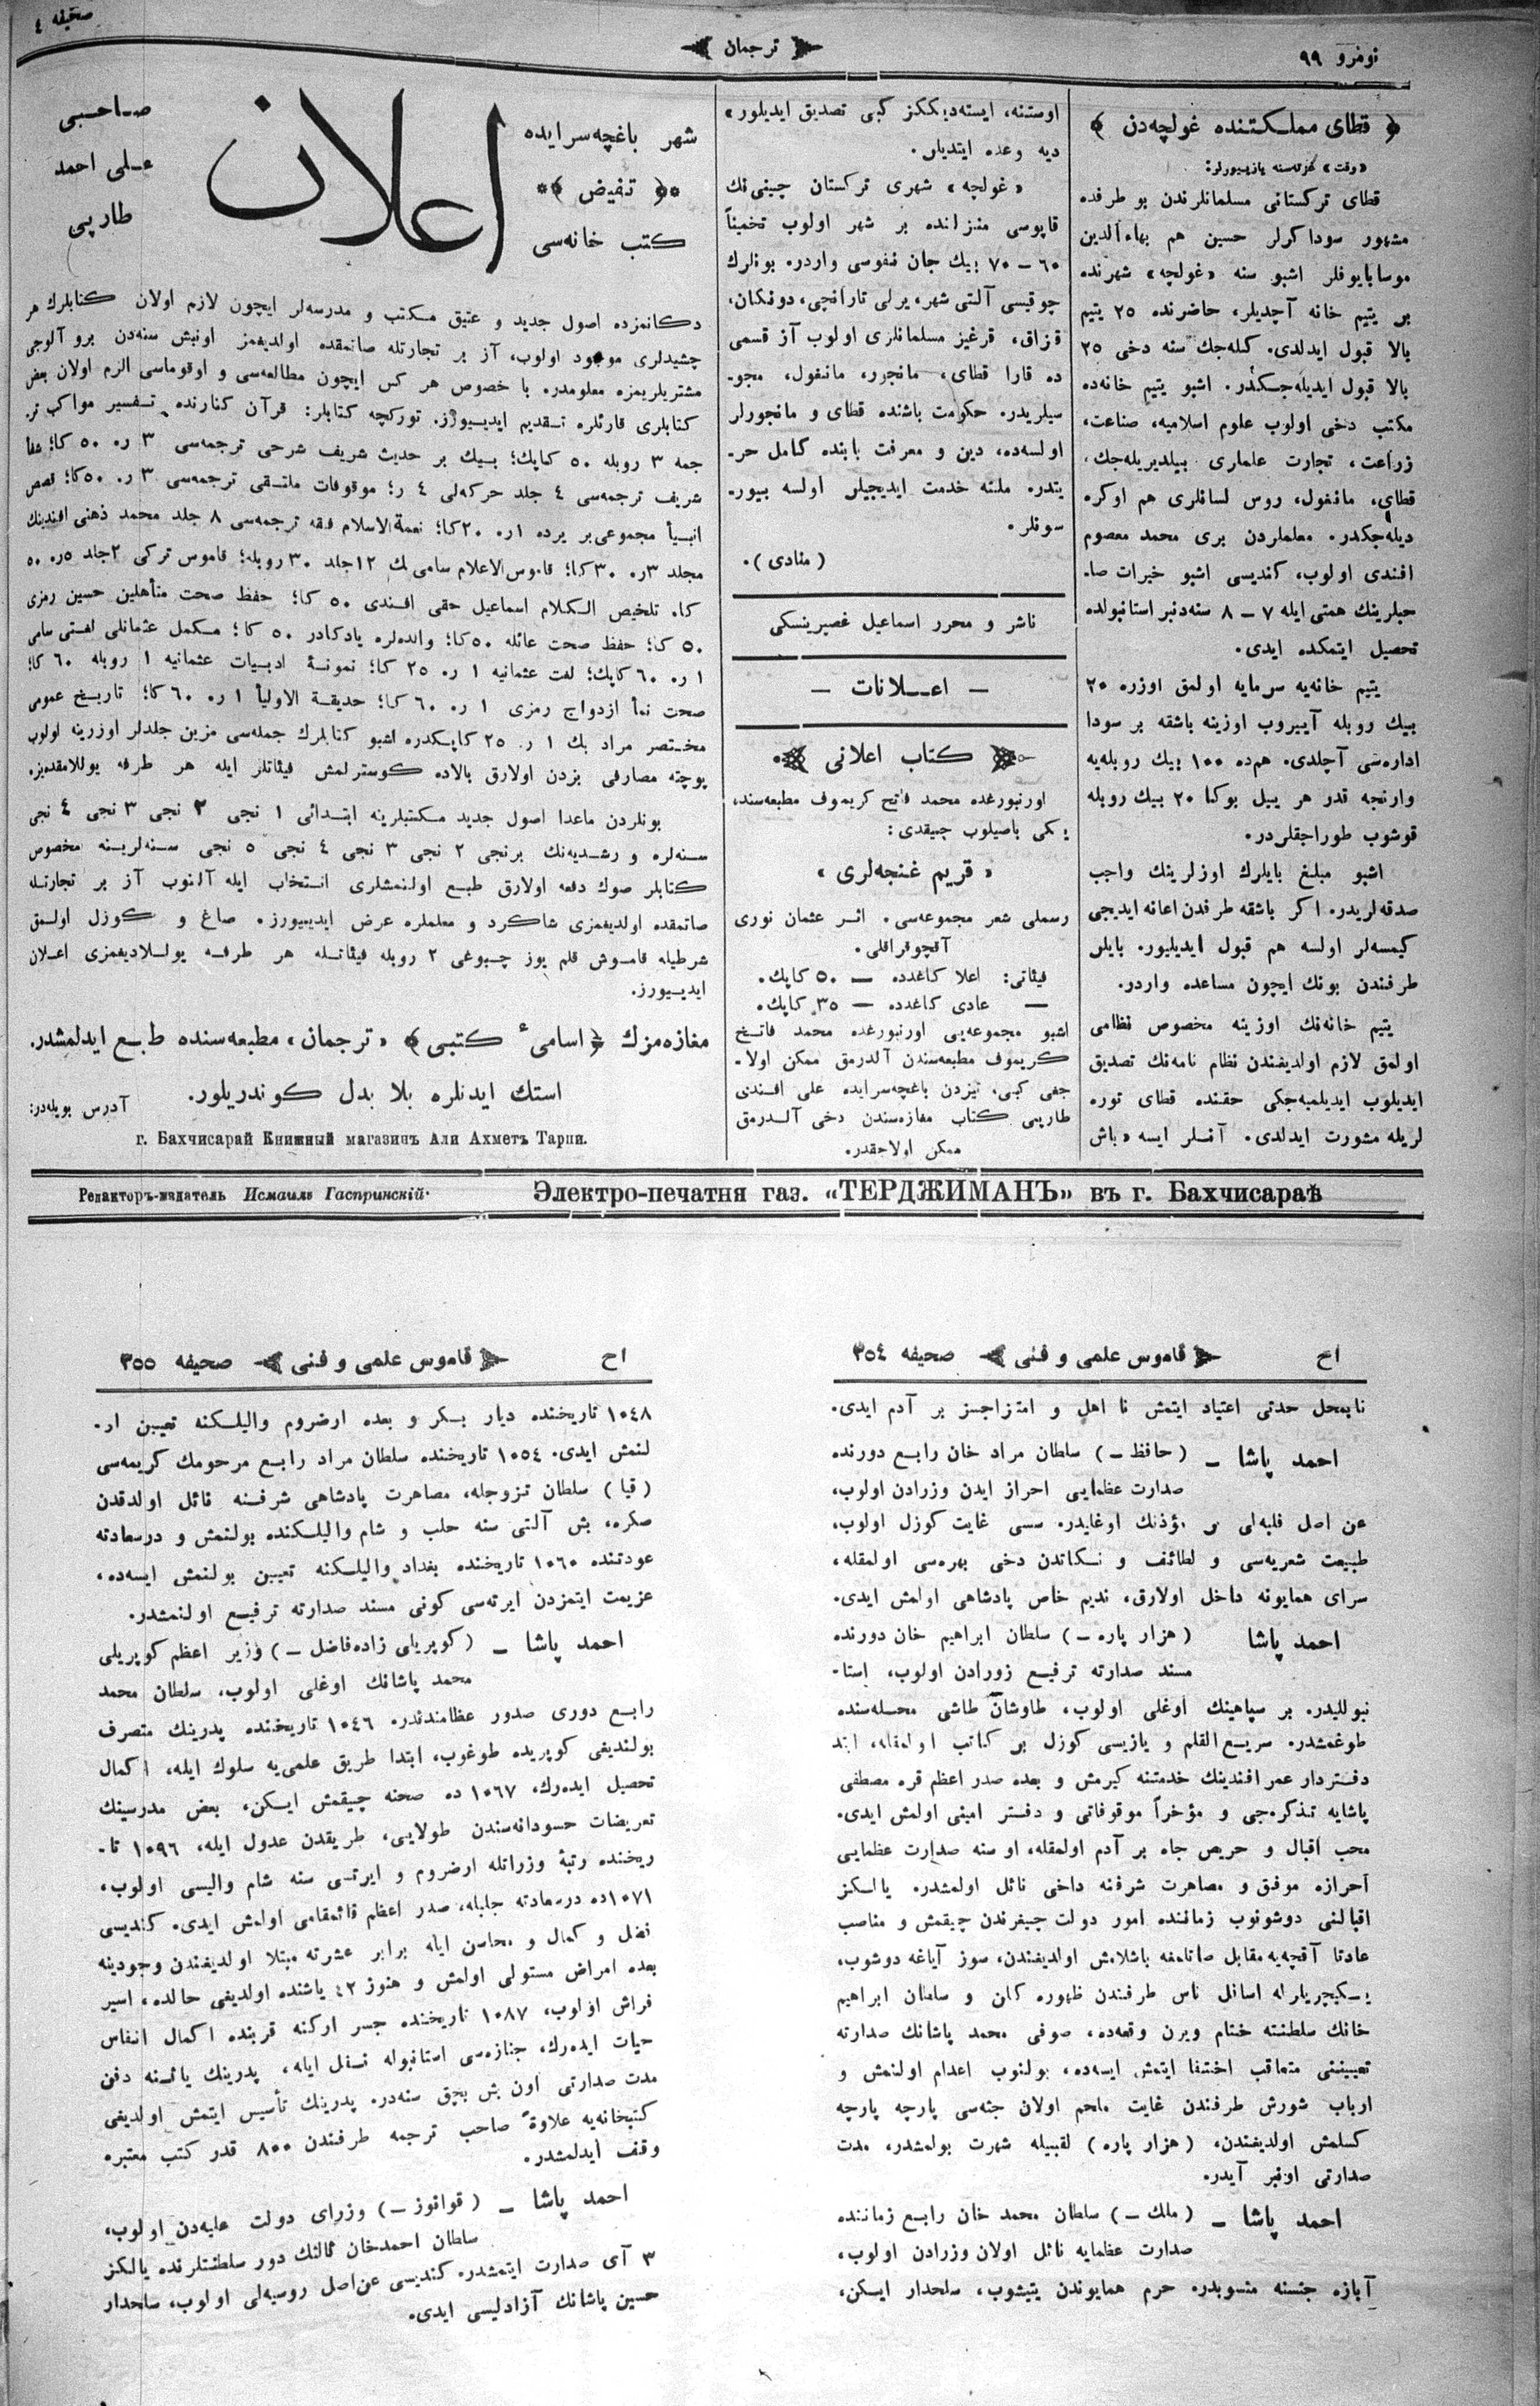 نومرو ۹۹
ترجمان
صحیفه ٤
قطای مملكتنده غولچه‌دن
«وقت» غزته‌سنه یازیورلر:
قطای تركستانی مسلمانلرندن بو طرفده
مشهور سوداكرلر حسین هم بهاءالدین
موسابایوفلر اشبو سنه «غولچه» شهرنده
بر یتیم خانه آچدیلر، حاضرنده ۲٥ یتیم
بالا قبول ایدلدی. كله‌جك سنه دخی ۲٥
بالا قبول ایدیله‌جكدر. اشبو یتیم خانه‌ده
مكتب دخی اولوب علوم اسلامیه، صناعت،
زراعت، تجارت علملری بیلدیریله‌جك،
قطای، مانغول، روس لسانلری هم اوكره
دیله‌جكدر. معلملردن بری محمد معصوم
افندی اولوب، كندیسی اشبو خیرات صا-
حبلرینك همتی ایله ۷ – ۸ سنه‌دنبر استانبولده
تحصیل ایتمكده ایدی.
یتیم خانه‌یه سرمایه اولمق اوزره ۲۰
بیك روبله آییروب اوزینه باشقه بر سودا
اداره‌سی آچلدی. هم‌ده ۱۰۰ بیك روبله‌یه
وارنجه قدر هر ییل بوكا ۲۰ بیك روبله
قوشوب طوراجقلی‌در.
اشبو مبلغ بایلرك اوزلرینك واجب
صدقه‌لریدر. اكر باشقه طرفدن اعانه ایدیجی
كیمسه‌لر اولسه هم قبول ایدیلیور. بایلر
طرفندن بونك ایچون مساعده واردر.
یتیم خانه‌نك اوزینه مخصوص نظامی
اولمق لازم اولدیغندن نظام نامه‌نك تصدیق
ایدیلوب ایدیلمیه‌جكی حقنده قطای توره
لریله مشورت ایدلدی. آنلر ایسه «باش
اوستنه، ایسته‌دیككز كبی تصدیق ایدیلور»
دیه وعده ایتدیلر.
«غولچه» شهری تركستان چینی‌نك
قاپوسی منزلنده بر شهر اولوب تخمیناً
۶۰ – ۷۰ بیك جان نفوسی واردر. بونلرك
چوقیسی آلتی شهر، یرلی تارانچی، دونكان،
قزاق، قرغیز مسلمانلری اولوب آز قسمی
ده قارا قطای، مانجور، مانغول، مجو-
سیلریدر. حكومت باشنده قطای و مانجورلر
اولسه‌ده، دین و معرفت بابنده كامل حر-
یتدر. ملته خدمت ایدیجیلر اولسه بیور-
سونلر.
(منادی).
ناشر و محرر اسماعیل غصپرینسكی
– اعلانات –
كتاب اعلانی
اورنبورغده محمد فاتح كریموف مطبعه‌سنده
یكی باصیلوب چیقدی:
«قریم غنجه‌لری»
رسملی شعر مجموعه‌سی. اثر عثمان نوری
آقچوقراقلی.
فیئاتی: اعلا كاغدده – ٥۰ كاپك.
— عادی كاغدده — ۳٥ كاپك.
اشبو مجموعه‌یی اورنبورغده محمد فاتح
كریموف مطبعه‌سندن آلدرمق ممكن اولا-
جغی كبی، نیزدن باغچه‌سرایده علی افندی
طارپی كتاب مغازه‌سندن دخی آلدرمق
ممكن اولاجقدر.
شهر باغچه‌سرایده
تفیض
كتب خانه‌سی
اعلان
صاحبی
علی احمد
طارپی
دكانمزده اصول جدید و عتیق مكتب و مدرسه‌لر ایچون لازم اولان كتابلرك هر
چشیدلری موجود اولوب، آز بر تجارتله صاتمقده اولدیغمز اونبش سنه‌دن برو آلوجی
مشتریلریمزه معلومدر. با خصوص هر كس ایچون مطالعه‌سی و اوقوماسی الزم اولان بعض
كتابلری قارئلره تقدیم ایدییورز. توركچه كتابلر: قرآن كنارنده تفسیر مواكب تر-
جمه ۳ روبله ٥۰ كاپك؛ بیك بر حدیث شریف شرحی ترجمه‌سی ۳ ر. ٥۰ كا؛ شفا
شریف ترجمه‌سی ٤ جلد حركه‌لی ٤ ر؛ موقوفات ملتقی ترجمه‌سی ۳ ر. ٥۰كا؛ قصص
انبیأ مجموعی بر یرده ۱ر. ۲۰كا؛ نعمةالاسلام فقه ترجمه‌سی ۸ جلد محمد ذهنی افندینك
مجلد ۳ر. ۳۰كا؛ قاموس‌الاعلام سامی بك ۱۲جلد ۳۰ روبله؛ قاموس تركی ۲جلد ٥ر. ٥۰
كا. تلخیص الكلام اسماعیل حقی افندی ٥۰ كا؛ حفظ صحت متأهلین حسین رمزی
٥۰ كا؛ حفظ صحت عائله ٥۰كا؛ والده‌لره یادكادر ٥۰ كا؛ مكمل عثمانلی لغتی سامی
۱ ر. ۶۰ كاپك؛ لغت عثمانیه ۱ ر. ۲٥ كا؛ نمونۀ ادبیات عثمانیه ۱ روبله ۶۰ كا؛
صحت نمأ ازدواج رمزی ۱ ر. ۶۰ كا؛ حدیقة الاولیأ ۱ ر. ۶۰ كا؛ تاریخ عمومی
مختصر مراد بك ۱ ر. ۲٥ كاپكدره اشبو كتابلرك جمله‌سی مزین جلدلر اوزرینه اولوب
پوچته مصارفی بزدن اولارق بالاده كوسترلمش فیئاتلر ایله هر طرفه یوللامقده‌یز.
بونلردن ماعدا اصول جدید مكتبلرینه ابتدائی ۱ نجی ۲ نجی ۳ نجی ٤ نجی
سنه‌لره و رشدیه‌نك برنجی ۲ نجی ۳ نجی ٤ نجی ٥ نجی سنه‌لرینه مخصوص
كتابلر صوك دفعه اولارق طبع اولنمشلری انتخاب ایله آلنوب آز بر تجارتله
صاتمقده اولدیغمزی شاكرد و معلملره عرض ایدییورز. صاغ و كوزل اولمق
شرطیله قاموش قلم یوز چبوغی ۲ روبله فیئاتله هر طرفه یوللادیغمزی اعلان
ایدییورز.
مغازه‌مزك «اسامیٔ كتبی» «ترجمان» مطبعه‌سنده طبع ایدلمشدر.
استك ایدنلره بلا بدل كوندریلور. آدرس بویله‌در:
г. Бахчисарай Книжный магазинъ Али Ахметъ Тарпи.
Редакторъ-издатель Исмаилъ Гаспринскій. Электро-печатня газ. «ТЕРДЖИМАНЪ» въ г. Бахчисараѣ
اح قاموس علمی و فنی صحیفه ۳٥٤
نابمحل حدتی اعتیاد ایتمش نا اهل و امتزاجسز بر آدم ایدی.
احمد پاشا – (حافظ –) سلطان مراد خان رابع دورنده
صدارت عظمایی احراز ایدن وزرادن اولوب،
عن اصل فلبه‌لی بر مؤذنك اوغلیدر. سسی غایت كوزل اولوب،
طبیعت شعریه‌سی و لطائف و نكاتدن دخی بهره‌سی اولمقله،
سرای همایونه داخل اولارق، ندیم خاص پادشاهی اولمش ایدی.
احمد پاشا (هزار پاره –) سلطان ابراهیم خان دورنده
مسند صدارته ترفیع زورادن اولوب، استا-
نبوللیدر. بر سپاهینك اوغلی اولوب، طاوشان طاشی محله‌سنده
طوغمشدر. سریع‌القلم و یازیسی كوزل بر كاتب اولمقله، ابتد
دفتردار عمر افندینك خدمتنه كیرمش و بعده صدر اعظم قره مصطفی
پاشایه تذكره‌جی و مؤخراً موقوفاتی و دفتر امینی اولمش ایدی.
محب اقبال و حریص جاه بر آدم اولمقله، او سنه صدارت عظمایی
احرازه موفق و مصاهرت شرفنه داخی نائل اولمشدر. یالكز
اقبالنی دوشونوب زماننده امور دولت چیغرندن چیقمش و مناصب
عادتا آقچه‌یه مقابل صاتلمغه باشلامش اولدیغندن، سوز آیاغه دوشوب،
یكیچریلرله اسافل ناس طرفندن ظهوره كلن و سلطان ابراهیم
خانك سلطنتنه ختام ویرن وقعه‌ده، صوفی محمد پاشانك صدارته
تعییننی متعاقب اختفا ایتمش ایسه‌ده، بولنوب اعدام اولنمش و
ارباب شورش طرفندن غایت ملحم اولان جثه‌سی پارچه پارچه
كسلمش اولدیغندن، (هزار پاره) لقبیله شهرت بولمشدر، مدت
صدارتی اونبر آیدر.
احمد پاشا – (ملك –) سلطان محمد خان رابع زماننده
صدارت عظمایه نائل اولان وزرادن اولوب،
آبازه جنسنه منسوبدر. حرم همایوندن یتیشوب، سلحدار ایكن،
اح قاموس علمی و فنی صحیفه ۳٥٥
۱۰٤۸ تاریخنده دیار بكر و بعده ارضروم والیلكنه تعیین او-
لنمش ایدی. ۱۰٥٤ تاریخنده سلطان مراد رابع مرحومك كریمه‌سی
(قیا) سلطان تزوجله، مصاهرت پادشاهی شرفنه نائل اولدقدن
صكره، بش آلتی سنه حلب و شام والیلكنده بولنمش و درسعادته
عودتنده ۱۰۶۰ تاریخنده بغداد والیلكنه تعیین بولنمش ایسه‌ده،
عزیمت ایتمزدن ایرته‌سی كونی مسند صدارته ترفیع اولنمشدر.
احمد پاشا – (كوپریلی زاده‌فاضل –) وزیر اعظم كوپریلی
محمد پاشانك اوغلی اولوب، سلطان محمد
رابع دوری صدور عظامندندر. ۱۰٤۶ تاریخنده پدرینك متصرف
بولندیغی كوپریده طوغوب، ابتدا طریق علمی‌یه سلوك ایله، اكمال
تحصیل ایده‌رك، ۱۰۶۷ ده صحنه چیقمش ایكن، بعض مدرسینك
تعریضات حسودانه‌سندن طولایی، طریقدن عدول ایله، ۱۰۹۶ تا-
ریخنده رتبۀ وزراتله ارضروم و ایرتسی سنه شام والیسی اولوب،
۱۰۷۱ده درسعادته جلبله، صدر اعظم قائمقامی اولمش ایدی. كندیسی
فضل و كمال و محاسن ایله برابر عشرته مبتلا اولدیغندن وجودینه
بعده امراض مستولی اولمش و هنوز ٤۲ یاشنده اولدیغی حالده، اسیر
فراش اولوب، ۱۰۸۷ تاریخنده جسر اركنه قربنده اكمال انفاس
حیات ایده‌رك، جنازه‌سی استانبوله نقل ایله، پدرینك یاننه دفن
مدت صدارتی اون بش بچق سنه‌در. پدرینك تأسیس ایتمش اولدیغی
كتبخانه‌یه علاوةً صاحب ترجمه طرفندن ۸۰۰ قدر كتب معتبره
وقف ایدلمشدر.
احمد پاشا – (قوانوز –) وزرای دولت علیه‌دن اولوب،
سلطان احمدخان ثالثك دور سلطنتلرنده یالكز
۳ آی صدارت ایتمشدر. كندیسی عن‌اصل روسیه‌لی اولوب، سلحدار
حسین پاشانك آزادلیسی ایدی.